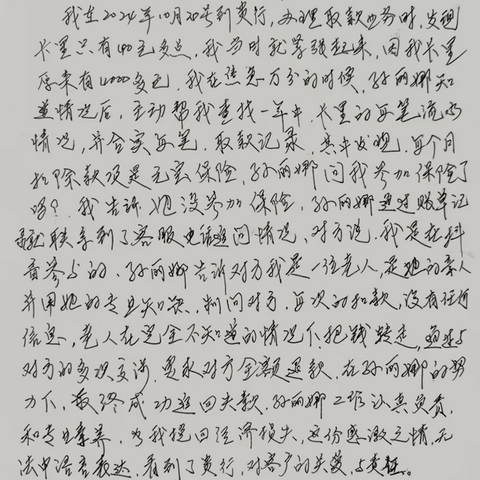 我在2024年10月20号到贵行,办理取款业务时,发现
卡里只有40元多点,我当时就紧张起来,因我卡里
原来有4000多元,我在焦急万分的时候,孙丽娜知
道情况后,主动帮我查找一年中,卡里的每笔流水
情况,并合实每笔,取款记录,其中发现,每个月
扣除款项是元宝保险,孙丽娜问我参加保险了
吗?我告诉她没参加保险,孙丽娜通过账单记
录联系到了客服电话追问情况,对方说,我是在抖
音参与的、孙丽娜告诉对方我是一位老人,是她的亲人
并用她的专业知识,制问对方,每次的扣款,没有任何
信息,老人在完全不知道的情况下把钱转走,通过与
对方的多次交涉,要求对方全额退款,在孙丽娜的努
力下,最终成功追回失款,孙丽娜工作认真负责,
和专业素养,为我挽回经济损失,这份感激之情,无
法用语言表达,看到了贵行,对客户的关爱,与责任。